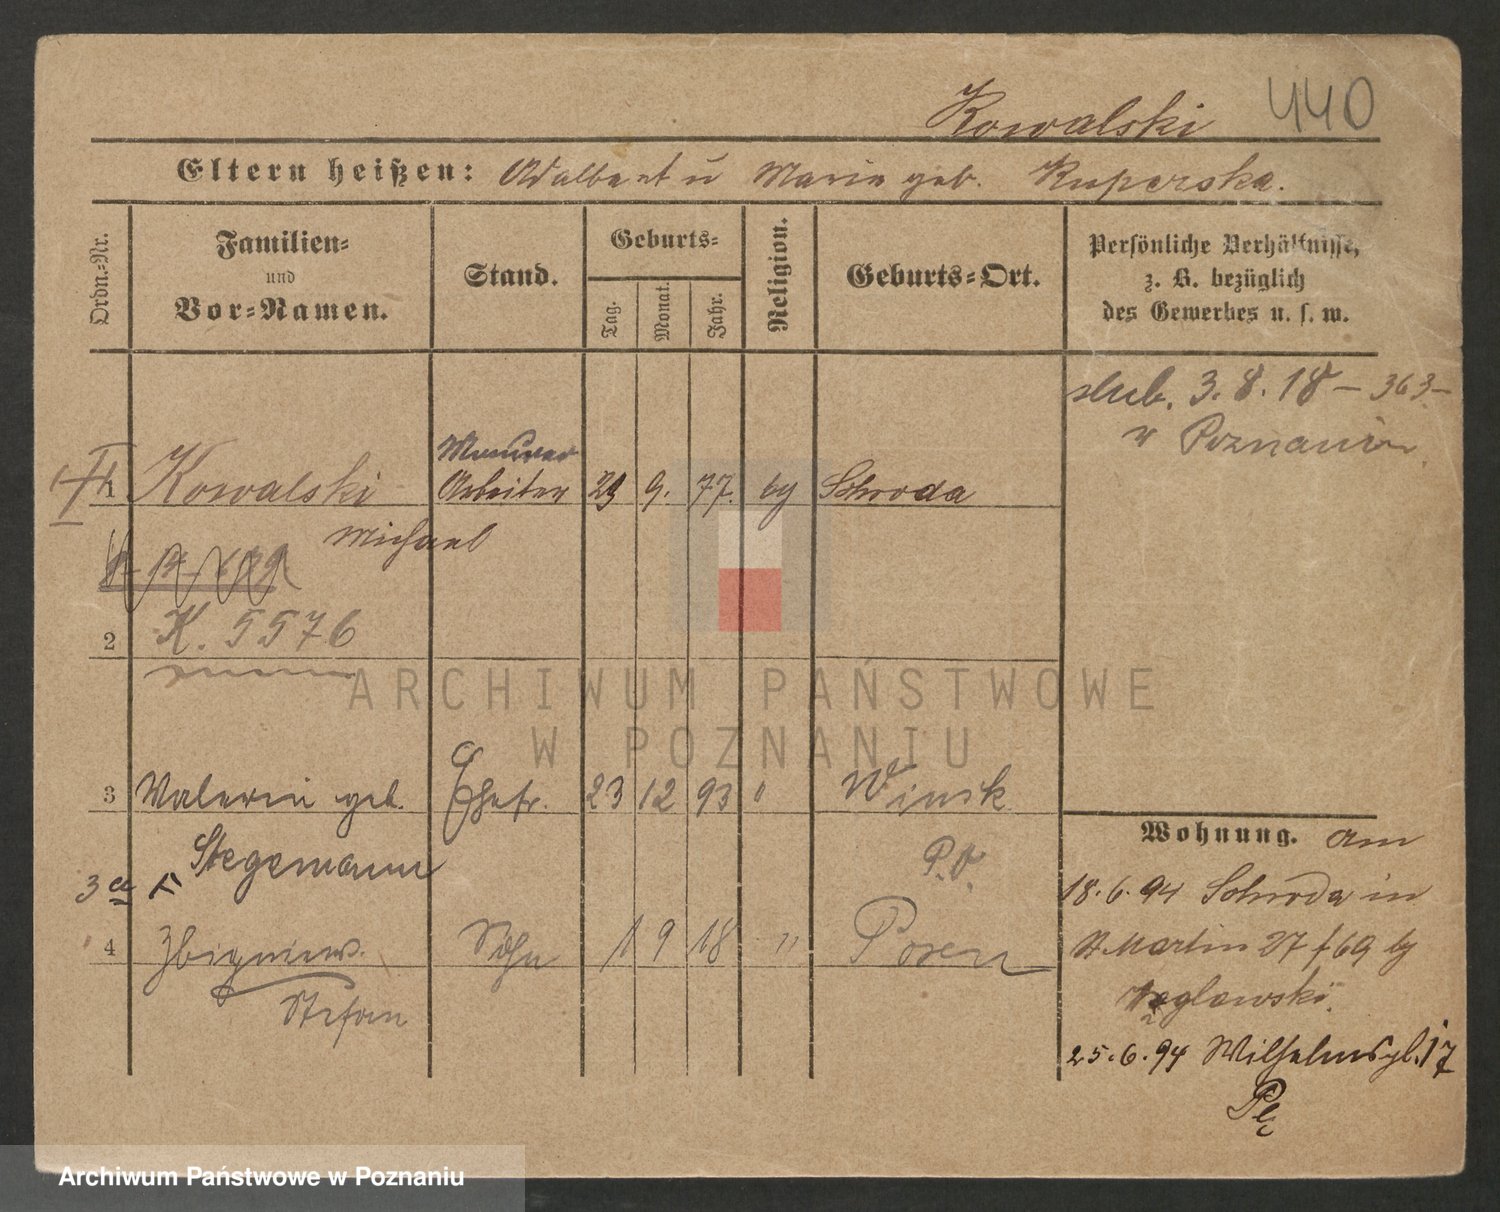 Kowalski 440
Eltern heißen: Adalbert u Marie geb. Kuperska.
Ordn.-Nr.
Familien-
und
Vor-Namen.
Stand.
Geburts-
Tag.
Monat.
Jahr.
Religion.
Geburts-Ort.
Persönliche Verhältnisse,
z. B. bezüglich
des Gewerbes u. s. w.
slub. 3.8.18 - 363 -
w Poznaniu
Maurer
1 Kowalski Arbeiter 29 9. 77. Schroda
Michael
2 K. 5576
ARCHIWUM PAŃSTWOWE
W POZNANIU
3 Valerie geb. Ehefr. 23 12 93 " Winik
Stegemann
P.O.
Wohnung. am
18.6.94 Schroda in
St Martin 27 f 69 by
3 a
4 Zbigniew Sohn 1 9 18 " Posen
Stefan
25.6.94 Wilhelmspl. 17
Archiwum Państwowe w Poznaniu